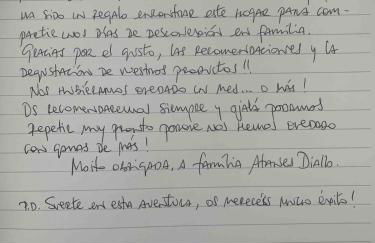 HA SIDO UN REGALO ENCONTRAR ESTE HOGAR PARA COM-
PARTIR UNOS DÍAS DE DESCONEXIÓN EN FAMILIA.
GRACIAS POR EL GUSTO, LAS RECOMENDACIONES Y LA
DEGUSTACIÓN DE VUESTROS PRODUCTOS!!
NOS HUBIÉRAMOS QUEDADO UN MES... O MÁS!
OS RECOMENDAREMOS SIEMPRE Y OJALÁ PODAMOS
REPETIR MUY PRONTO PORQUE NOS HEMOS QUEDADO
CON GANAS DE MÁS!
MOITO OBRIGADA, A FAMILIA ATANES DIALLO.
P.D. SUERTE EN ESTA AVENTURA, OS MERECÉIS MUCHO ÉXITO!